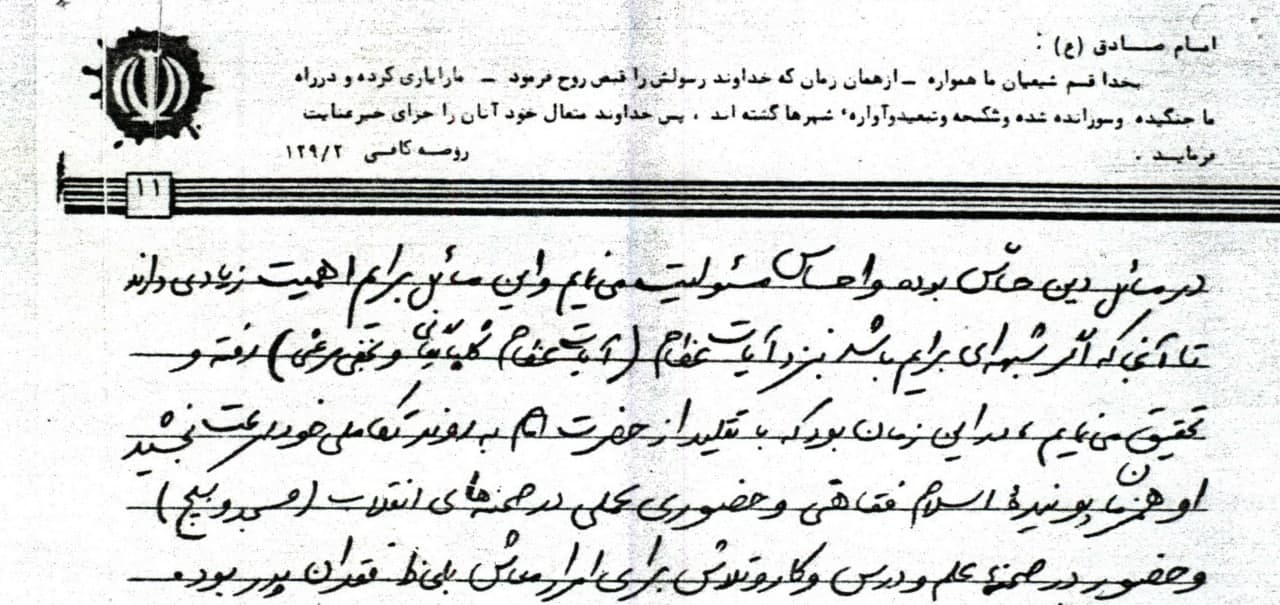 امام صادق (ع) :
بخدا قسم شیعیان ما همواره – ازهمان زمان که خداوند رسولش را قبض روح فرمود – مارایاری کرده و درراه
ما جنگیده وسوزانده شده وشکنجه وتبعیدوآواره شهرها گشته اند ، پس خداوند متعال خود آنان را جزای خیرعنایت
فرماید .
روضه کافی ۱۲۹/۲
۱۱
در مسائل دین حساس بوده و احساس مسئولیت می نمایم و این مسائل برایم اهمیت زیادی دارند
تا آنجا که اگر شبهه ای برایم باشد نزد آیات عظام (آیات عظام گلپایگانی و نجفی مرعشی) رفته و
تحقیق می نمایم ، در این زمان بود که با تقلید از حضرت امام به روند تکاملی خود سرعت بخشید
او همزمان پویندۀ اسلام فقاهتی و حضوری عملی در صحنه های انقلاب (مسجد و بسیج)
و حضور در صحنۀ علم و درس و کار و تلاش برای امرار معاش بلحاظ فقدان پدر بود .